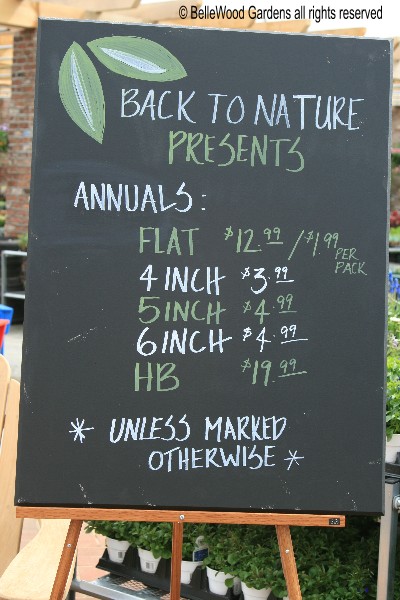 © BelleWood Gardens all rights reserved
BACK TO NATURE
PRESENTS
ANNUALS:
FLAT $12.99 / $1.99 PER PACK
4 INCH $3.99
5 INCH $4.99
6 INCH $4.99
HB $19.99
* UNLESS MARKED
OTHERWISE *